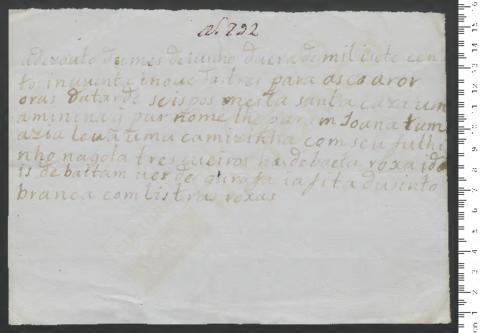 nº 292
a dezouto do mes de iunho du era de mil i sete cen
tos i nuventa i noue das tres para as coatror
oras da tarde se is pos nesta santa caza um
a minina i pur nome lhe param Joana tum
azia leua uma camizinha com seu fulhi
nho na gola tres cueiros hũ de baeta roxa i do
is de baitam uer de gurafa ia fita du sinto
branca com listras roxas